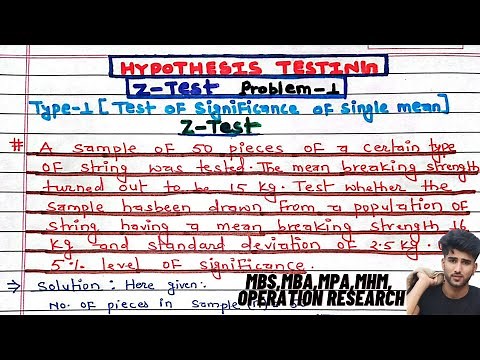 HYPOTHESIS TESTING
Z-Test Problem-1
Type-1 [Test of Significance of Single mean]
Z-Test
# A sample of 50 pieces of a certain type
of string was tested. The mean breaking strength
turned out to be 15 kg. Test whether the
sample hasbeen drawn from a population of
string having a mean breaking strength 16
kg and standard deviation of 2.5 kg.
5% level of significance.
⇒ Solution: Here given:
No. of pieces in sample
MBS,MBA,MPA,MHM,
OPERATION RESEARCH